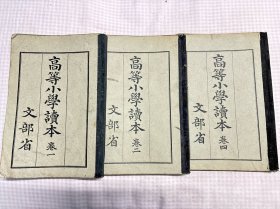 高等小學讀本 卷一
文部省
高等小學讀本 卷二
文部省
高等小學讀本 卷四
文部省